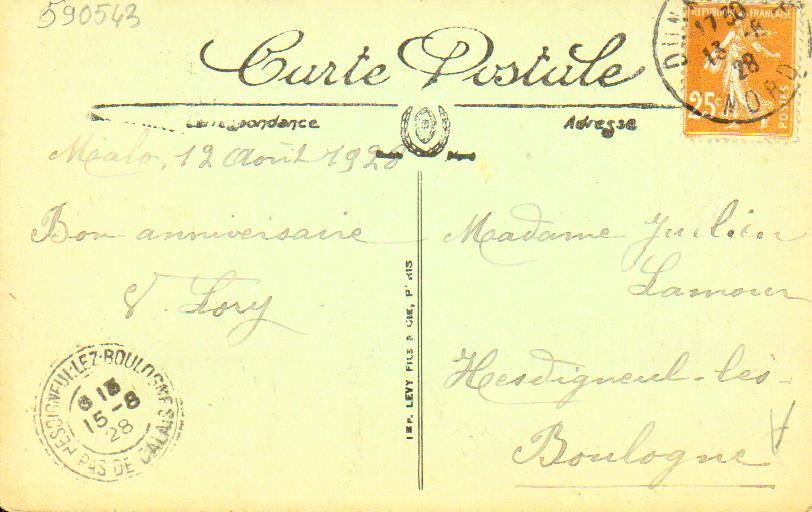 590543
Carte Postale
RÉPUBLIQUE FRANÇAISE
25c
POSTES
17 30
13 -8
28
NORD
Correspondance
Adresse
Malo, 12 Août 1928
Bon anniversaire
Madame Julien
Lamour
Hesdigneul-lès-
Boulogne
IMP. LEVY FILS & CIE, PARIS
HESDIGNEUL-LEZ-BOULOGNE S/M
15-8
28
PAS DE CALAIS